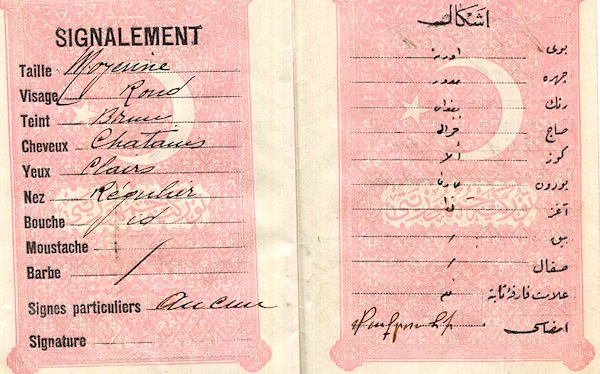 SIGNALEMENT
Taille Moyenne
Visage Rond
Teint Brun
Cheveux Chatains
Yeux Clairs
Nez Régulier
Bouche id
Moustache /
Barbe /
Signes particuliers aucun
Signature
اشكال
بوى اورته
چهره مدور
رنك
صاچ
كوز الا
بورون عادى
آغز
بيق /
صقال /
علامت فارقهٔ ثابته
امضاسى